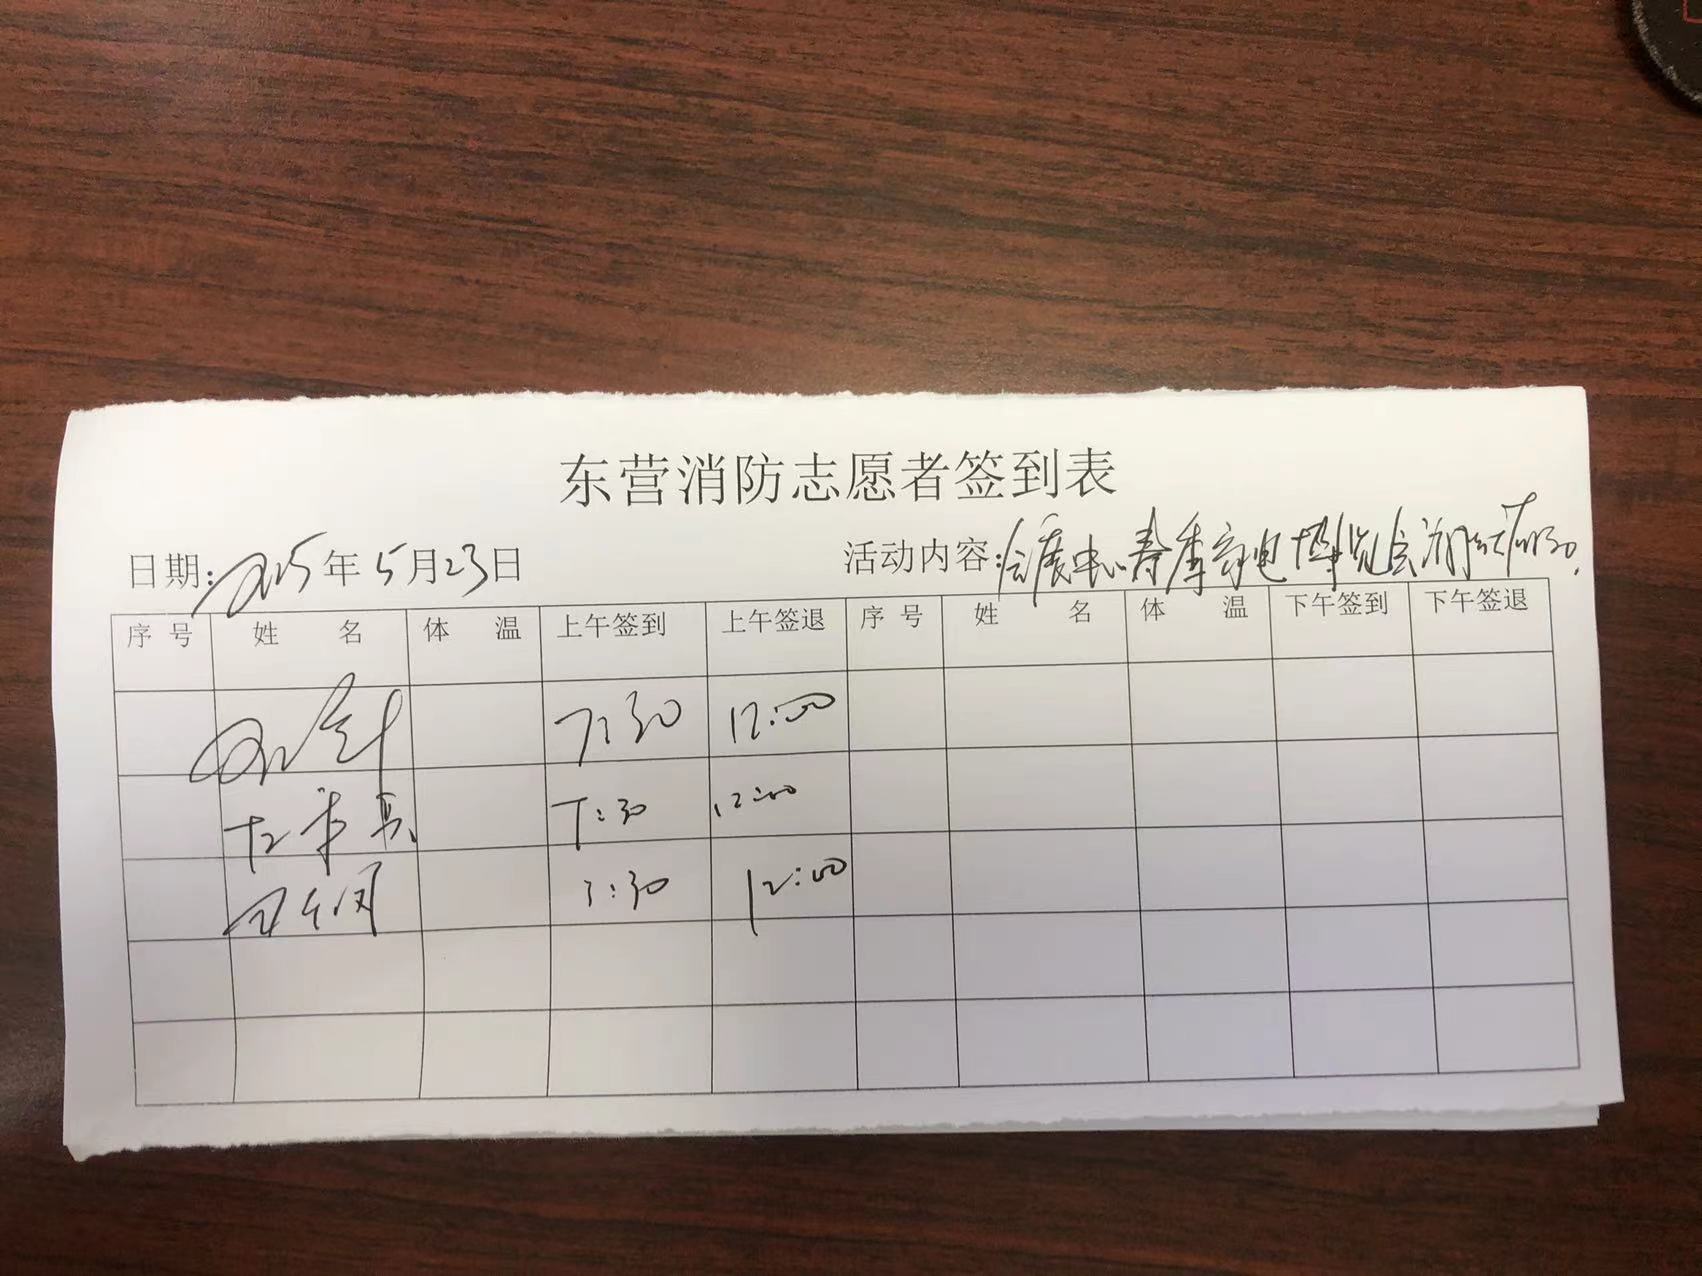 东营消防志愿者签到表
日期:2025年5月23日 活动内容:会展中心春季家电博览会消防
序号 姓 名 体 温 上午签到 上午签退 序号 姓 名 体 温 下午签到 下午签退
7:30 12:00
7:30 12:00
7:30 12:00